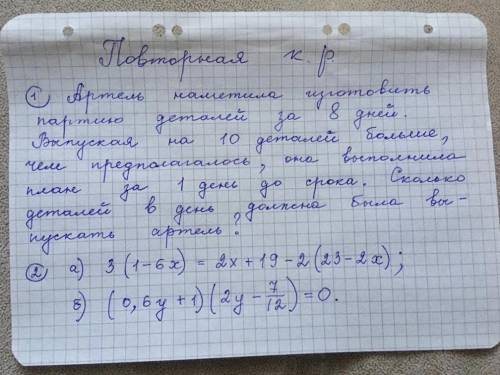 Повторная к. р
① Артель наметила изготовить
партию деталей за 8 дней.
Выпуская на 10 деталей больше,
чем предполагалось, она выполнила
план за 1 день до срока. Сколько
деталей в день должна была вы-
пускать артель?
② а) 3(1-6x) = 2x+19-2(23-2x);
б) (0,6y+1)(2y-7/12)=0.